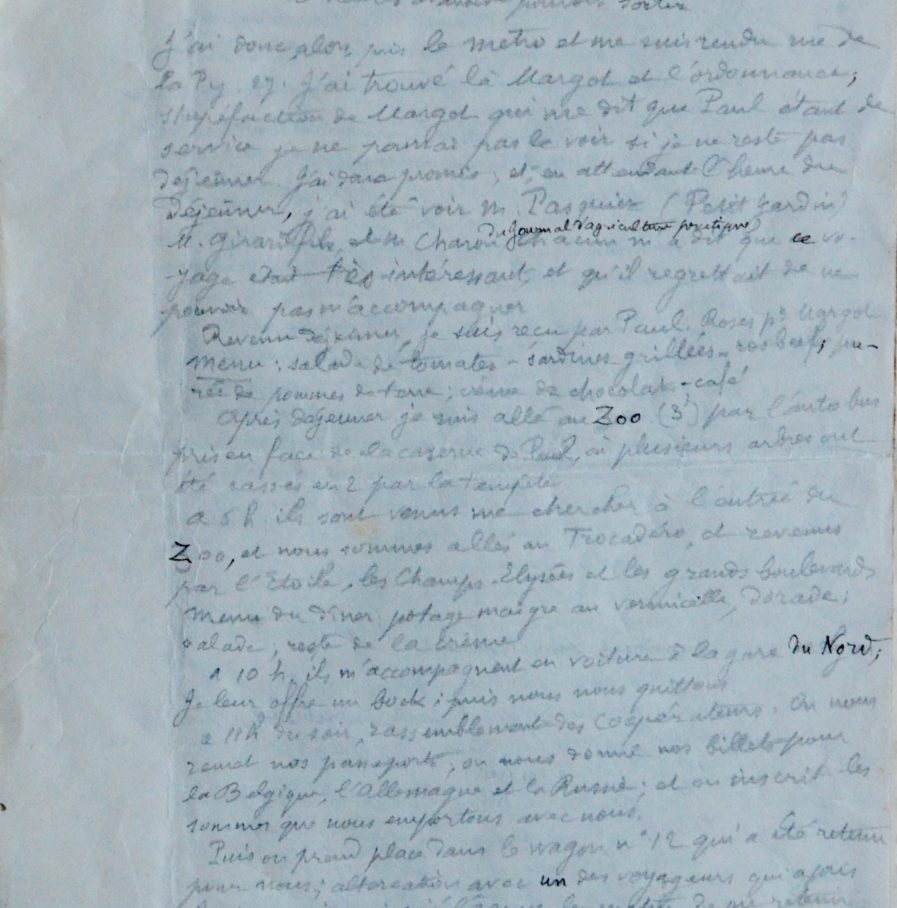 pouvoir sortir
J'ai donc alors pris le métro et me suis rendu rue de
la Py 27. J'ai trouvé là Margot et l'ordonnance;
stupéfaction de Margot qui me dit que Paul étant de
service je ne pourrai pas le voir si je ne reste pas
déjeûner. J'ai donc promis; et, en attendant l'heure du
Déjeûner, j'ai été voir M. Pasquier (Petit Jardin)
du Journal d'agriculture pratique)
M. Girard fils, et M. Charon chacun m'a dit que ce vo-
yage était très intéressant, et qu'il regrettait de ne
pouvoir pas m'accompagner
Revenu déjeûner, je suis reçu par Paul. Roses pr Margot
menu: salade de tomates - sardines grillées - rosbeef; pu-
rée de pommes de terre; crème de chocolat - café
Après déjeuner je suis allé au Zoo (3) par l'autobus
pris en face de la caserne de Paul, où plusieurs arbres ont
été cassés en 2 par la tempête
à 6 h ils sont venus me chercher à l'entrée du
Zoo, et nous sommes allés au Trocadéro, et revenus
par l'Etoile, les Champs-Elysées et les grands boulevards
Menu du dîner: potage maigre au vermicelle, dorade;
salade; reste de la crème
à 10 h. ils m'accompagnent en voiture à la gare du Nord;
Je leur offre un bock; puis nous nous quittons
à 11h du soir, rassemblement des Coopérateurs. On nous
remet nos passeports, on nous donne nos billets pour
la Belgique, l'Allemagne et la Russie; et on inscrit les
sommes que nous emportons avec nous.
Puis on prend place dans le wagon n° 12 qui a été retenu
pour nous; altercation avec un des voyageurs qui après